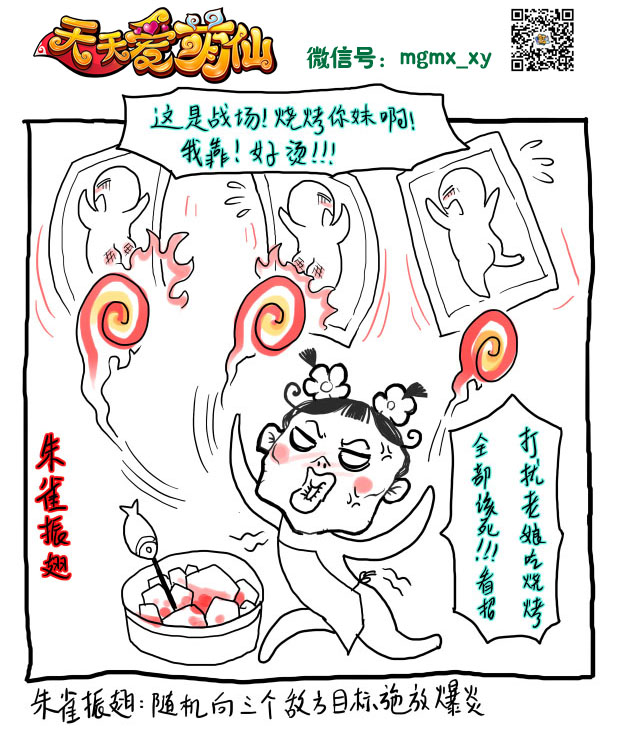 天天爱萌仙
微信号：mgmx_xy
这是战场！烧烤你妹啊！
我靠！好烫!!!
朱雀振翅
打扰老娘吃烧烤
全部该死!!!看招
朱雀振翅：随机向三个敌方目标施放爆炎